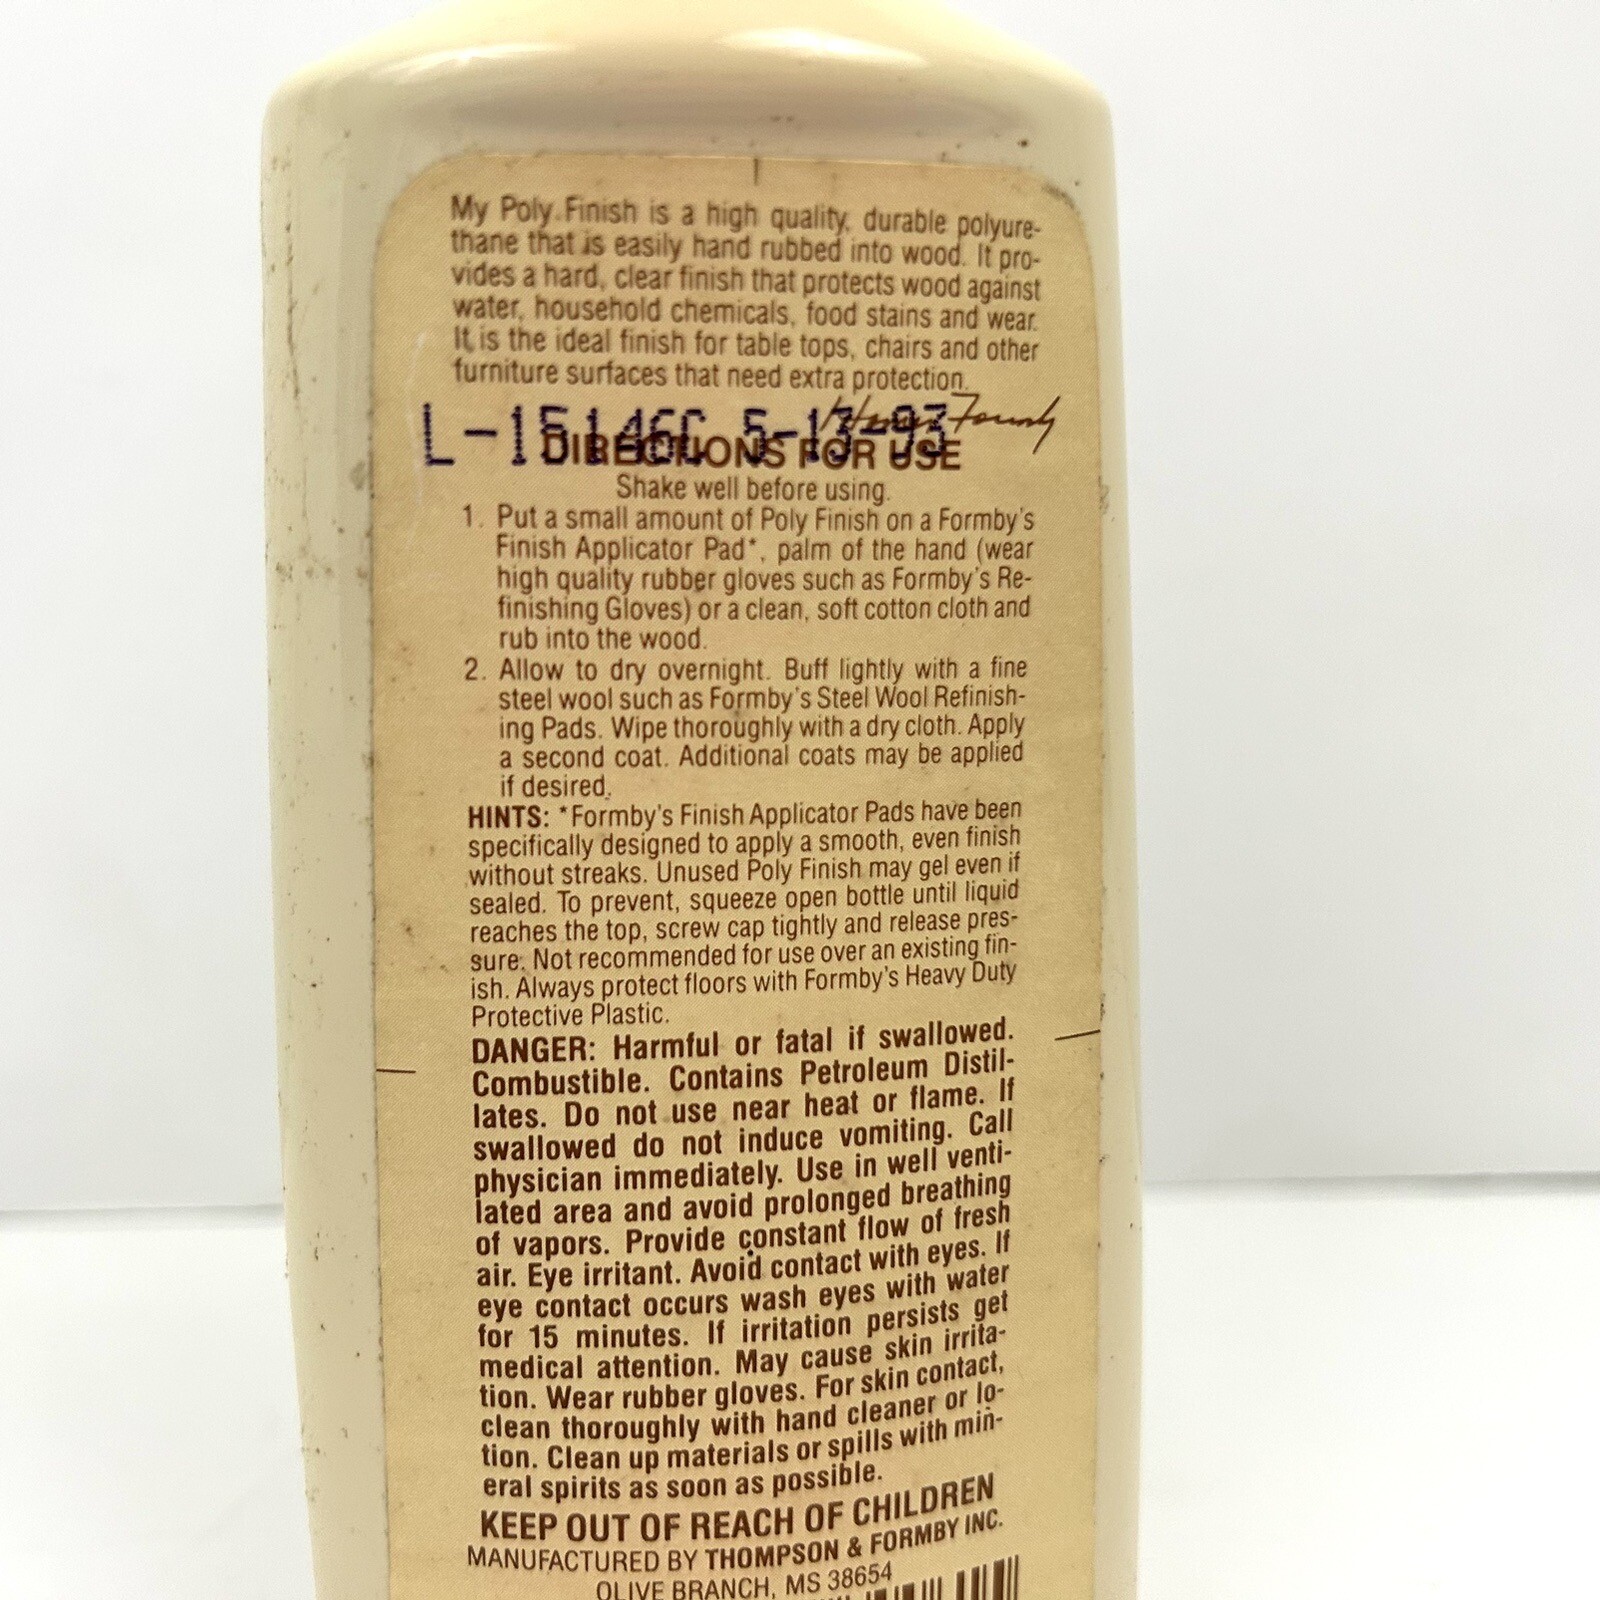 My Poly Finish is a high quality, durable polyure-
thane that is easily hand rubbed into wood. It pro-
vides a hard, clear finish that protects wood against
water, household chemicals, food stains and wear.
It is the ideal finish for table tops, chairs and other
furniture surfaces that need extra protection.
L-15146C 5-13-93
DIRECTIONS FOR USE
Shake well before using.
1. Put a small amount of Poly Finish on a Formby's
Finish Applicator Pad*, palm of the hand (wear
high quality rubber gloves such as Formby's Re-
finishing Gloves) or a clean, soft cotton cloth and
rub into the wood.
2. Allow to dry overnight. Buff lightly with a fine
steel wool such as Formby's Steel Wool Refinish-
ing Pads. Wipe thoroughly with a dry cloth. Apply
a second coat. Additional coats may be applied
if desired.
HINTS: *Formby's Finish Applicator Pads have been
specifically designed to apply a smooth, even finish
without streaks. Unused Poly Finish may gel even if
sealed. To prevent, squeeze open bottle until liquid
reaches the top, screw cap tightly and release pres-
sure. Not recommended for use over an existing fin-
ish. Always protect floors with Formby's Heavy Duty
Protective Plastic.
DANGER: Harmful or fatal if swallowed.
Combustible. Contains Petroleum Distil-
lates. Do not use near heat or flame. If
swallowed do not induce vomiting. Call
physician immediately. Use in well venti-
lated area and avoid prolonged breathing
of vapors. Provide constant flow of fresh
air. Eye irritant. Avoid contact with eyes. If
eye contact occurs wash eyes with water
for 15 minutes. If irritation persists get
medical attention. May cause skin irrita-
tion. Wear rubber gloves. For skin contact,
clean thoroughly with hand cleaner or lo-
tion. Clean up materials or spills with min-
eral spirits as soon as possible.
KEEP OUT OF REACH OF CHILDREN
MANUFACTURED BY THOMPSON & FORMBY INC.
OLIVE BRANCH, MS 38654